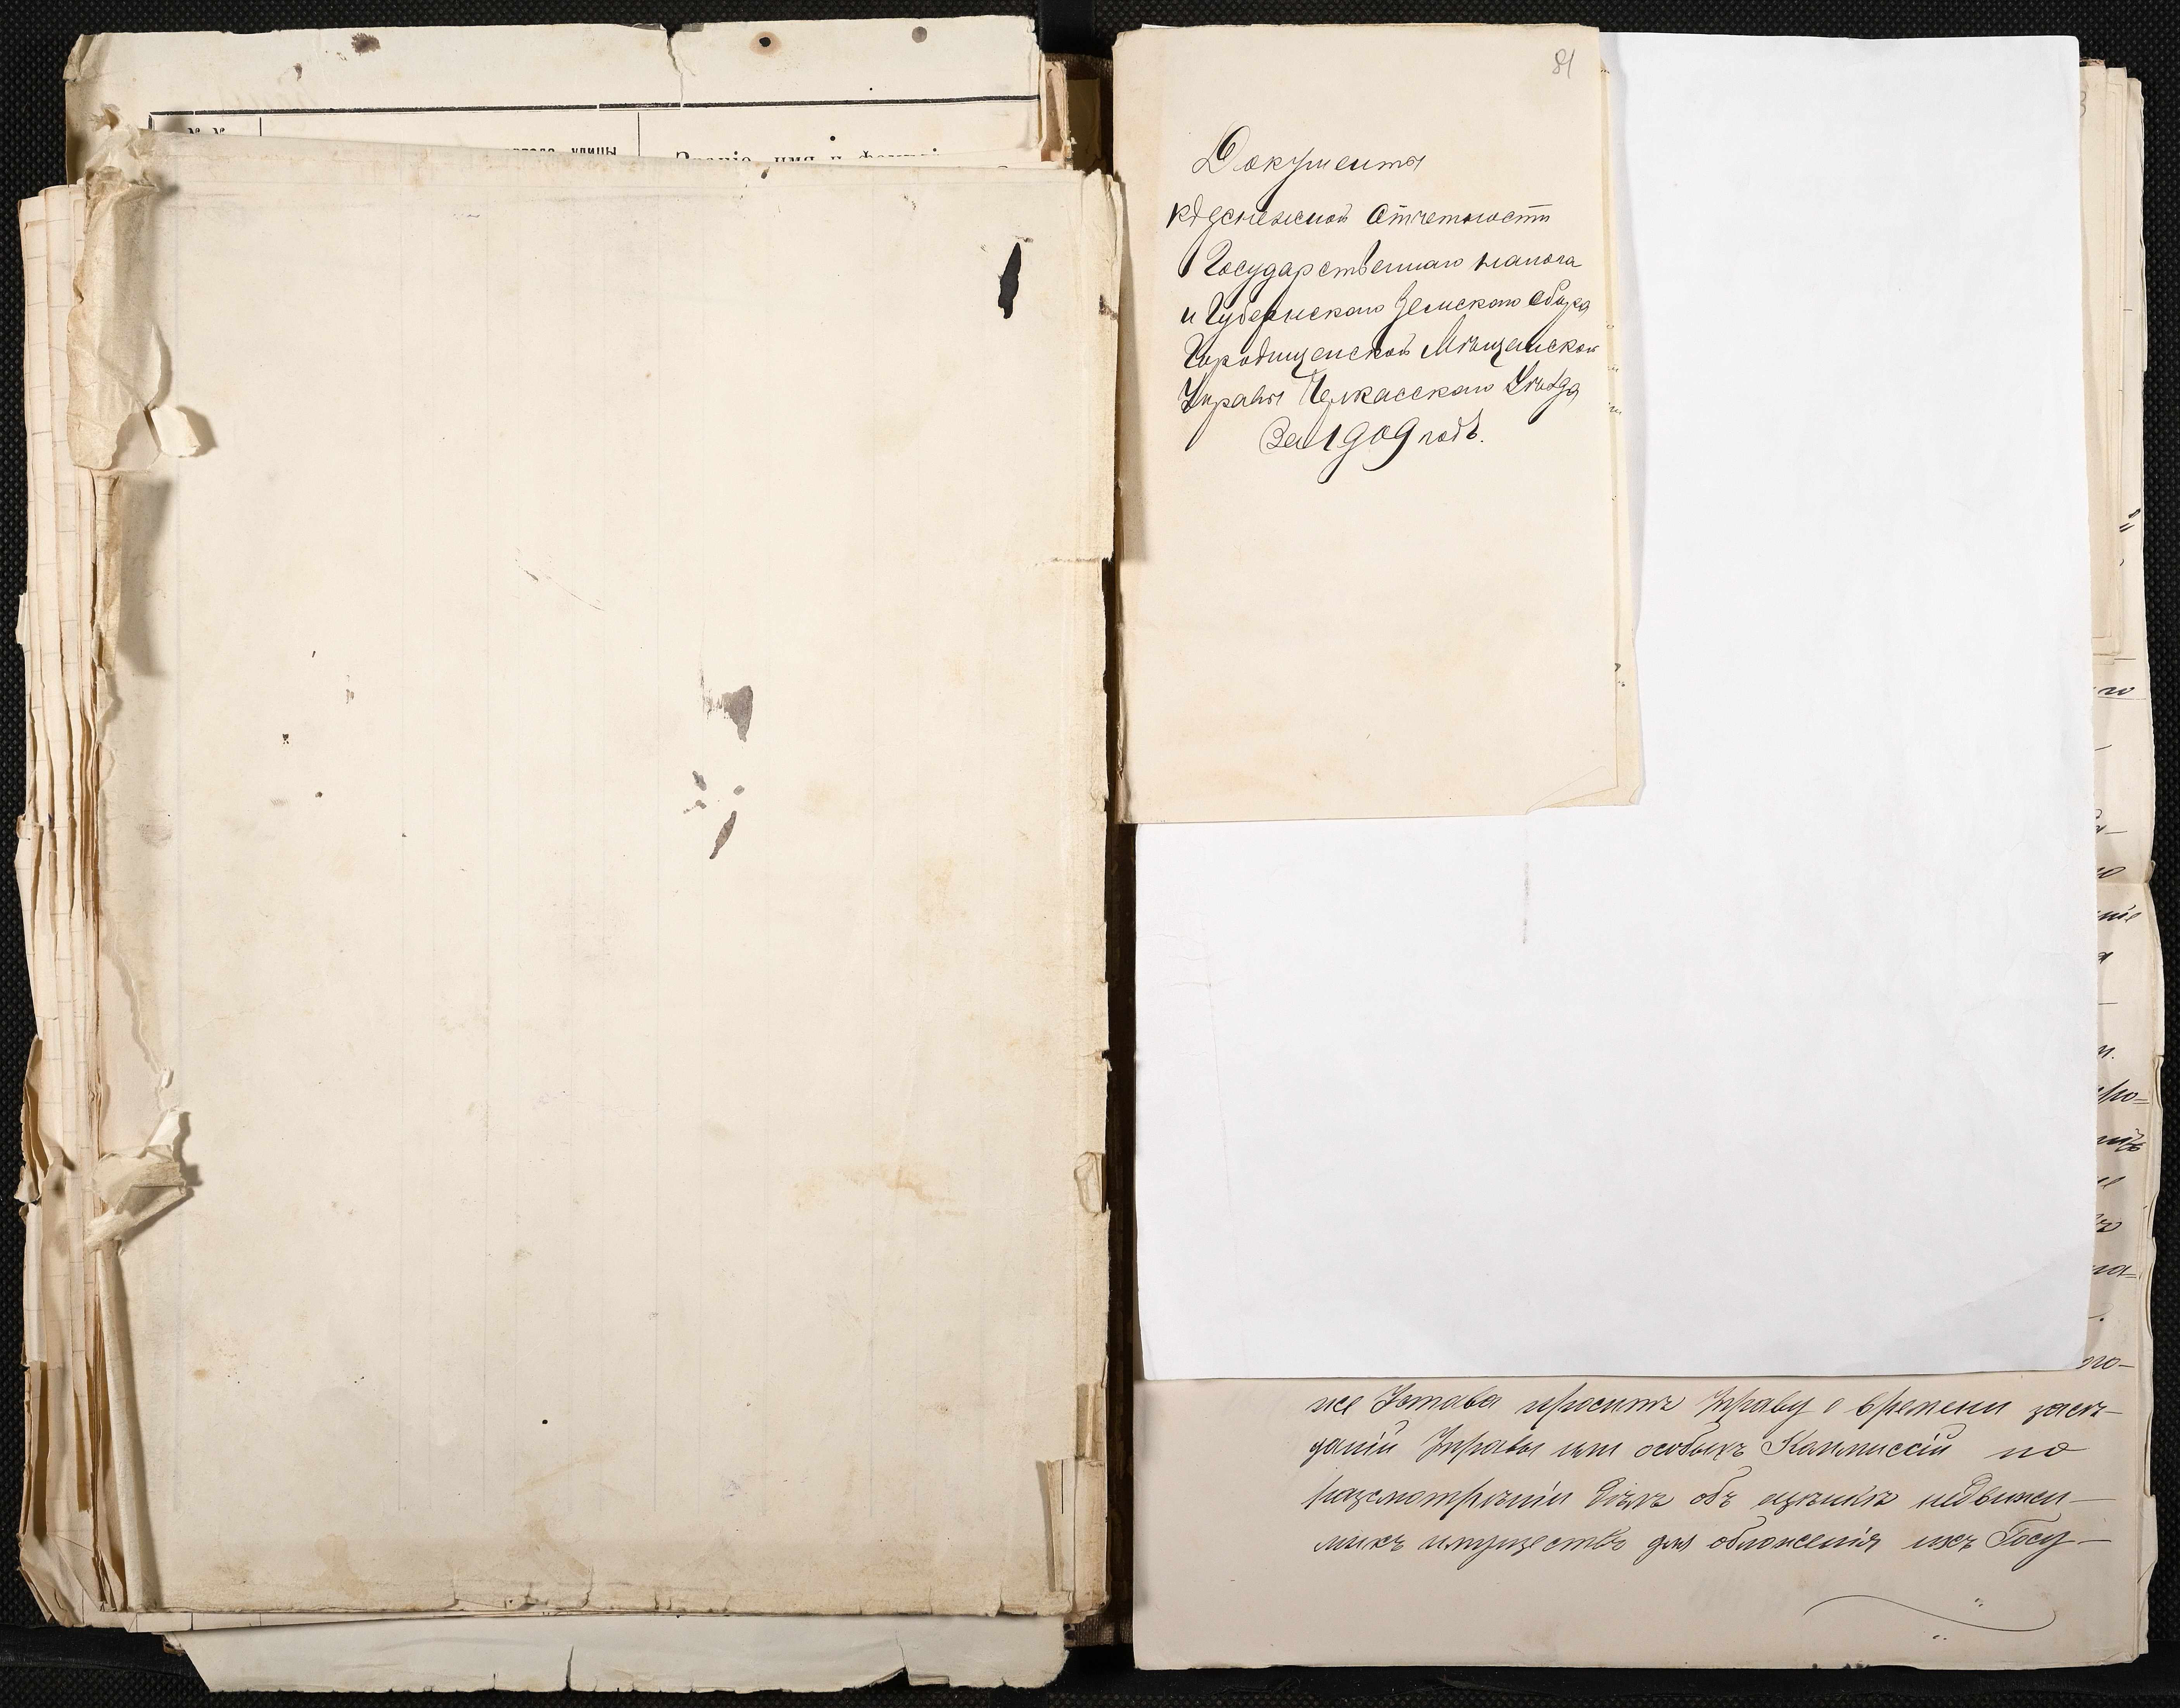 № №
улицы
Званіе, имя и фамилі
81
Документы
къ денежной отчетности
Государственнаго налога
и Губернскаго Земскаго сбора
Городищенской Мѣщанской
Управы Черкасскаго Уѣзда
За 1909 годъ.
же Устава проситъ Управу о времени засѣ-
даній Управы или особыхъ Коммиссій по
разсмотрѣнію дѣлъ объ оцѣнкѣ недвижи-
мыхъ имуществъ для обложенія ихъ Госу-